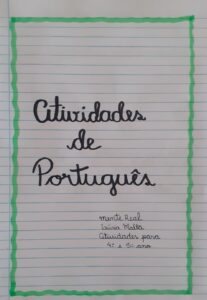 Atividades
de
Português
Mente Real
Luiza Malta
Atividades para
4º e 5º ano